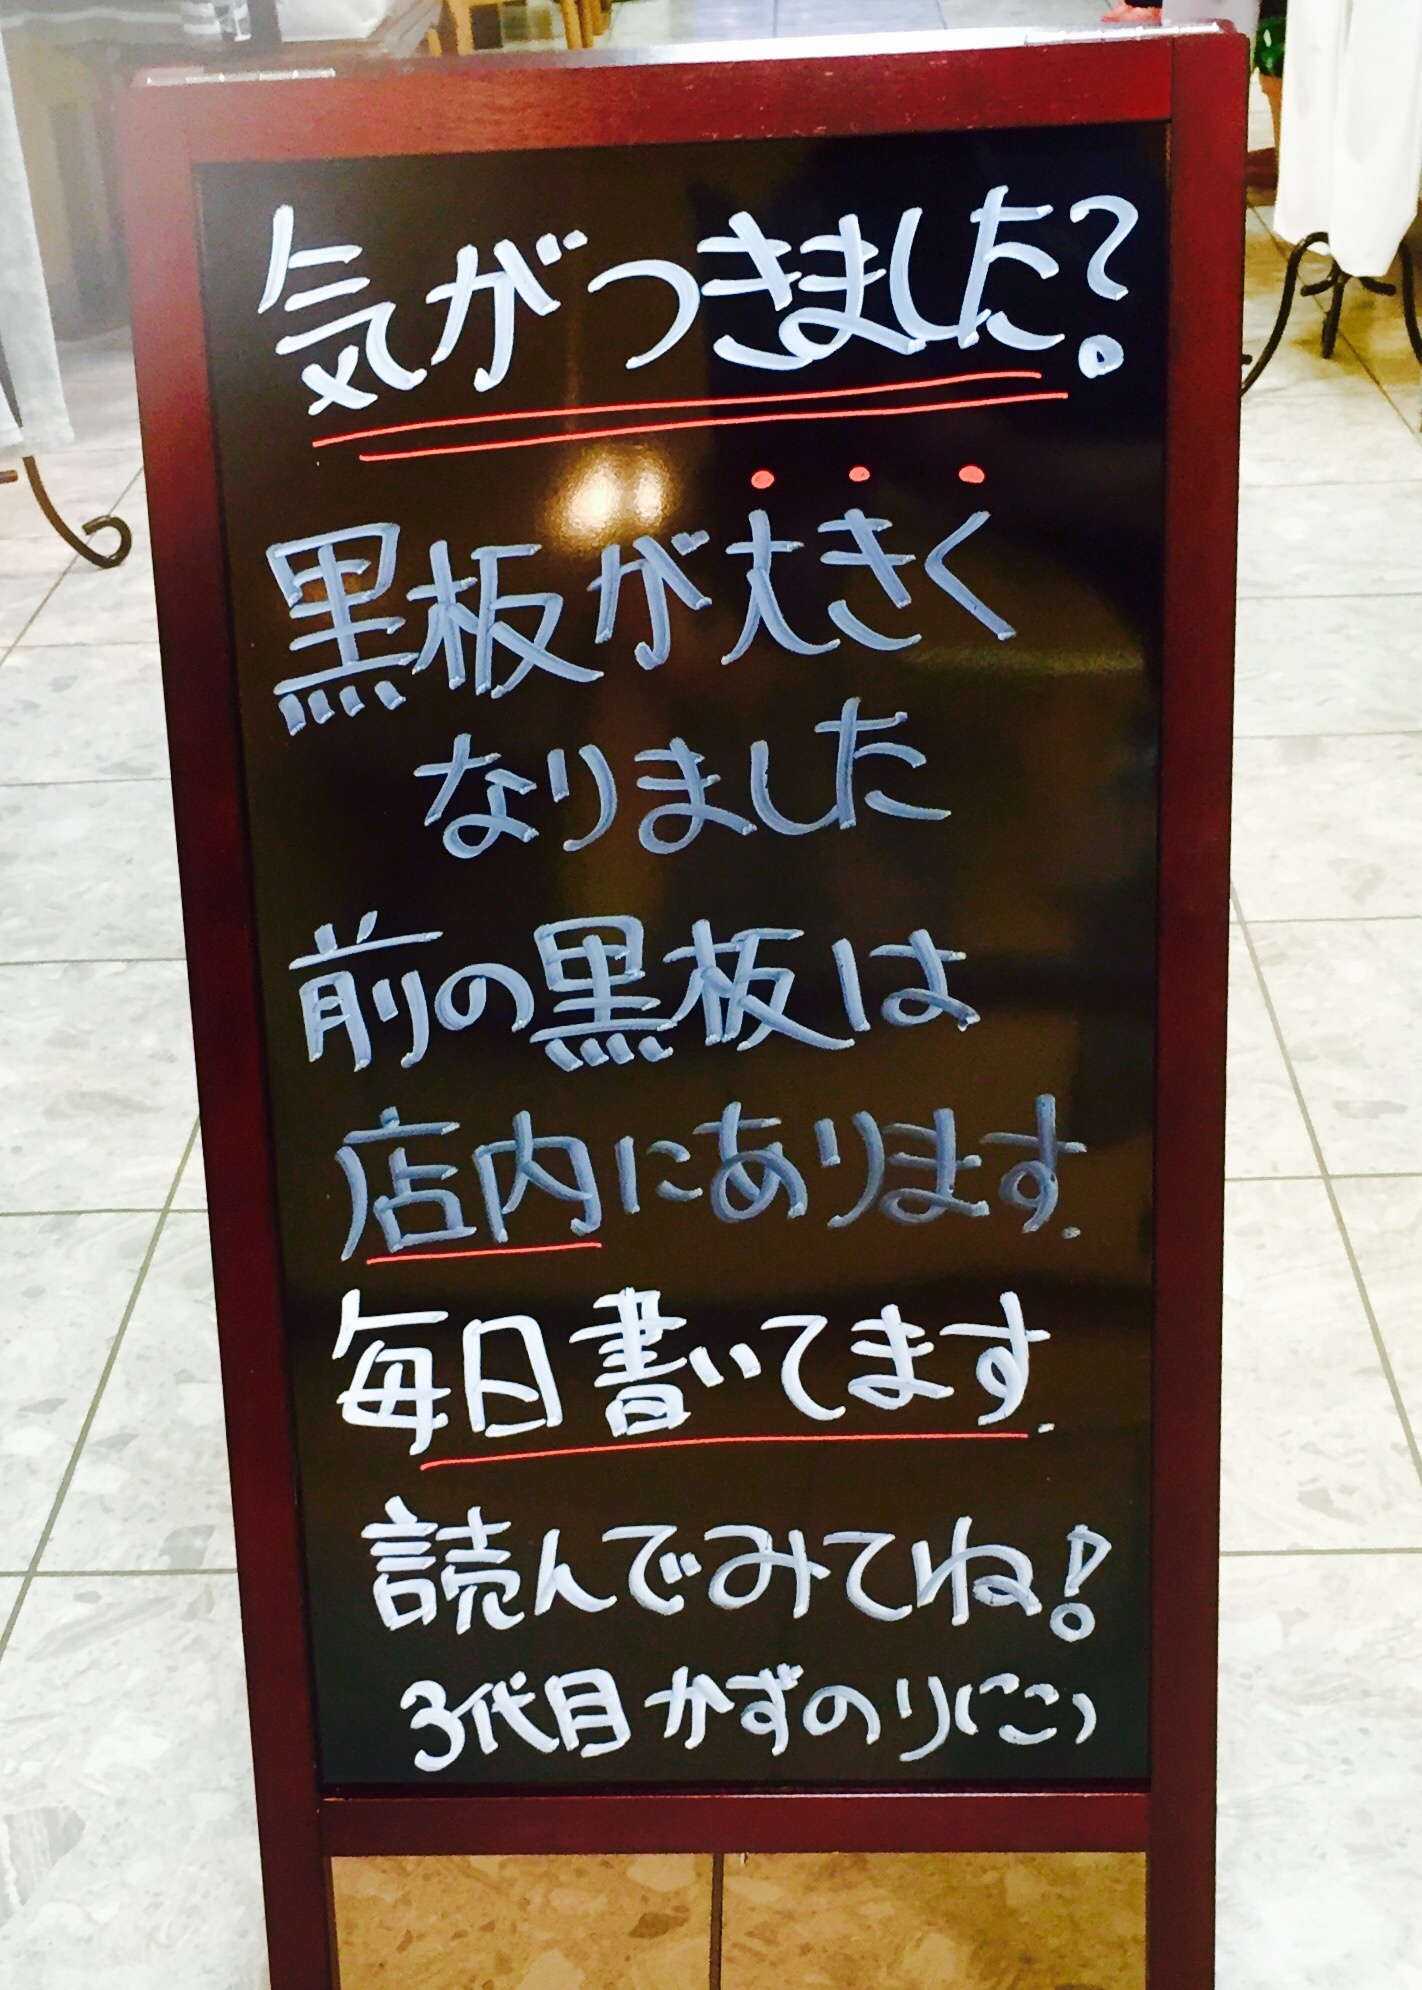 気がつきました?
黒板が大きく
なりました
前の黒板は
店内にあります.
毎日書いてます.
読んでみてね!
3代目かずのり(こ)